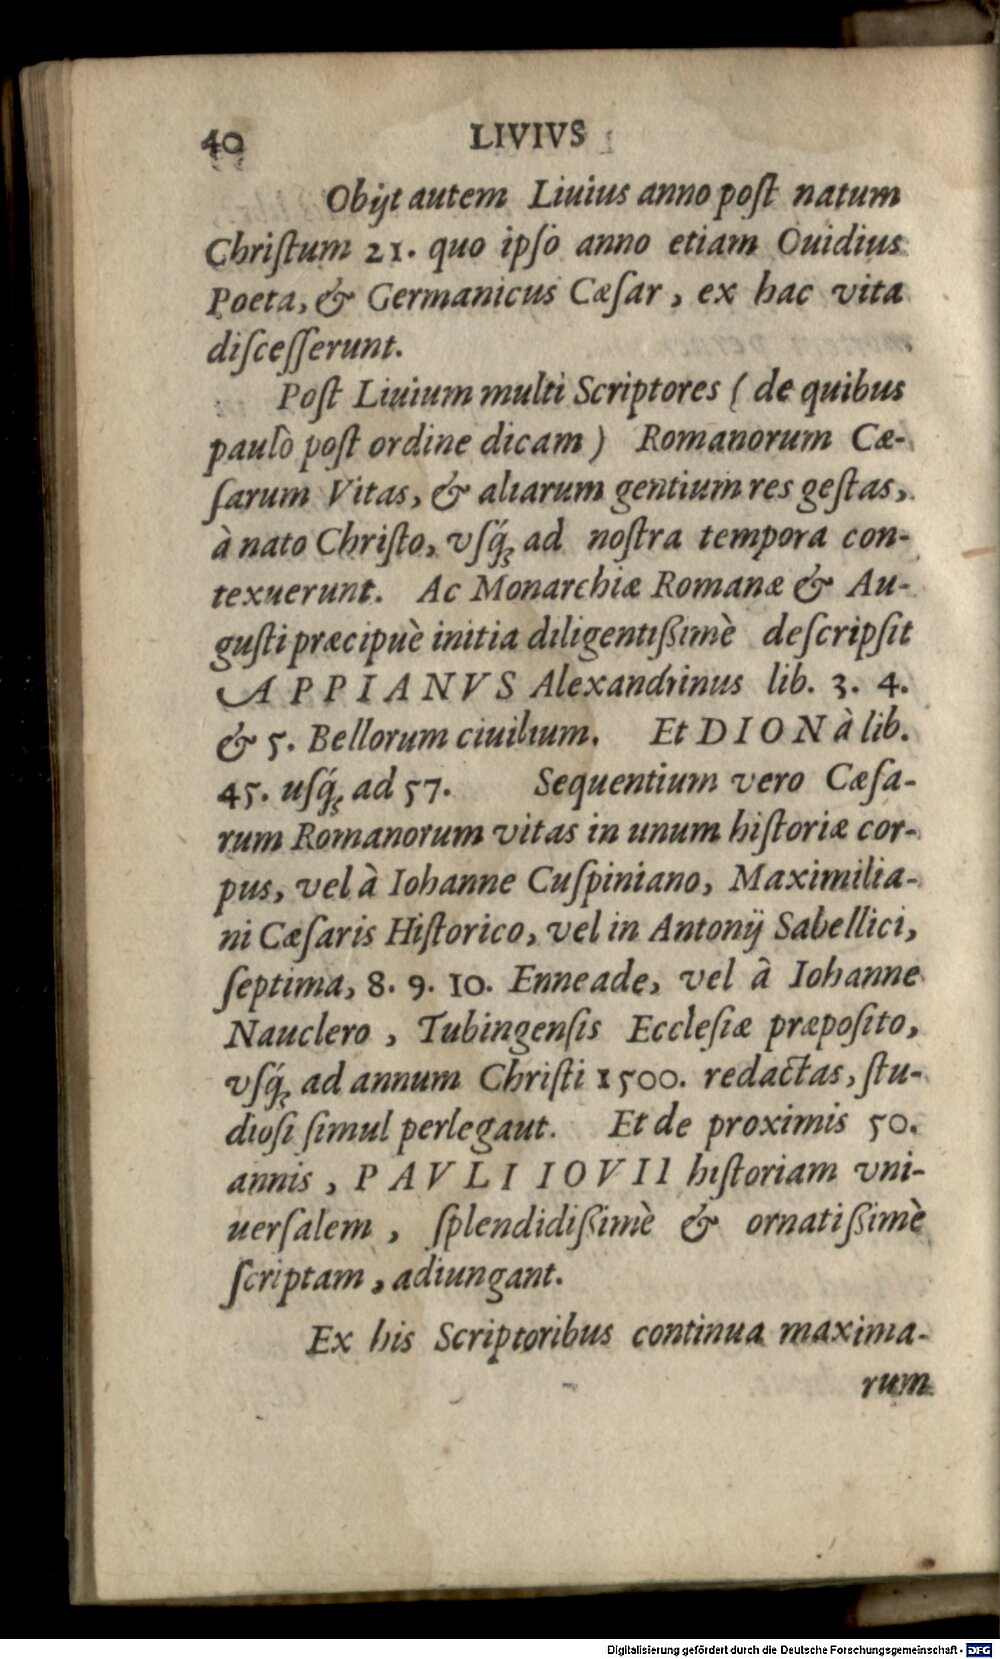 40 LIVIVS
Obijt autem Liuius anno poſt natum
Chriſtum 21. quo ipſo anno etiam Ouidius
Poeta, & Germanicus Cæſar, ex hac vita
diſceſſerunt.
Poſt Liuium multi Scriptores ( de quibus
paulò poſt ordine dicam ) Romanorum Cæ-
ſarum Vitas, & aliarum gentium res geſtas,
à nato Chriſto, vſq́; ad noſtra tempora con-
texuerunt. Ac Monarchiæ Romanæ & Au-
guſti præcipuè initia diligentißimè deſcripſit
APPIANVS Alexandrinus lib. 3. 4.
& 5. Bellorum ciuilium. Et DION à lib.
45. uſq́; ad 57. Sequentium vero Cæſa-
rum Romanorum vitas in unum hiſtoriæ cor-
pus, vel à Iohanne Cuſpiniano, Maximilia-
ni Cæſaris Hiſtorico, vel in Antonij Sabellici,
ſeptima, 8. 9. 10. Enneade, vel à Iohanne
Nauclero, Tubingenſis Eccleſiæ præpoſito,
vſq́; ad annum Chriſti 1500. redactas, ſtu-
dioſi ſimul perlegaut. Et de proximis 50.
annis, PAVLI IOVII hiſtoriam vni-
uerſalem, ſplendidißimè & ornatißimè
ſcriptam, adiungant.
Ex his Scriptoribus continua maxima-
rum
Digitalisierung gefördert durch die Deutsche Forschungsgemeinschaft - DFG